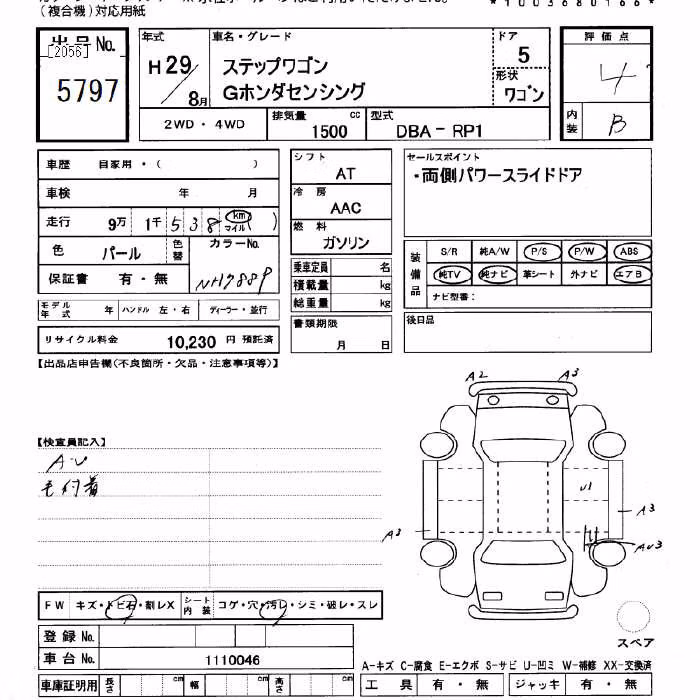 (複合機)対応用紙
*1003680166*
出品No.
[2056]
5797
年式
H29/8月
車名・グレード
ステップワゴン
Gホンダセンシング
ドア
5
形状
ワゴン
評価点
4
内装
B
2WD・4WD
排気量
1500
cc
型式
DBA-RP1
車歴 自家用・( )
車検 年 月
走行 9万 1千 538 km マイル ( )
色 パール
色替
カラーNo.
NH788P
保証書 有・無
モデル年式 年
ハンドル 左・右
ディーラー・並行
リサイクル料金 10,230 円 預託済
シフト
AT
冷房
AAC
燃料
ガソリン
乗車定員 名
積載量 kg
総重量 kg
書類期限
月 日
セールスポイント
・両側パワースライドドア
装備品
S/R 純A/W P/S P/W ABS
純TV 純ナビ 革シート 外ナビ エアB
ナビ型番:
後日品
【出品店申告欄(不良箇所・欠品・注意事項等)】
【検査員記入】
A・U
毛付着
A2 A3
U1
A3
A3
AU3
スペア
FW キズ・トビ石・割レX
シート内装 コゲ・穴・汚レ・シミ・破レ・スレ
登録No.
車台No. 1110046
車庫証明用 長さ cm 幅 cm 高さ cm
A-キズ C-腐食 E-エクボ S-サビ U-凹ミ W-補修 XX-交換済
工具 有・無 ジャッキ 有・無